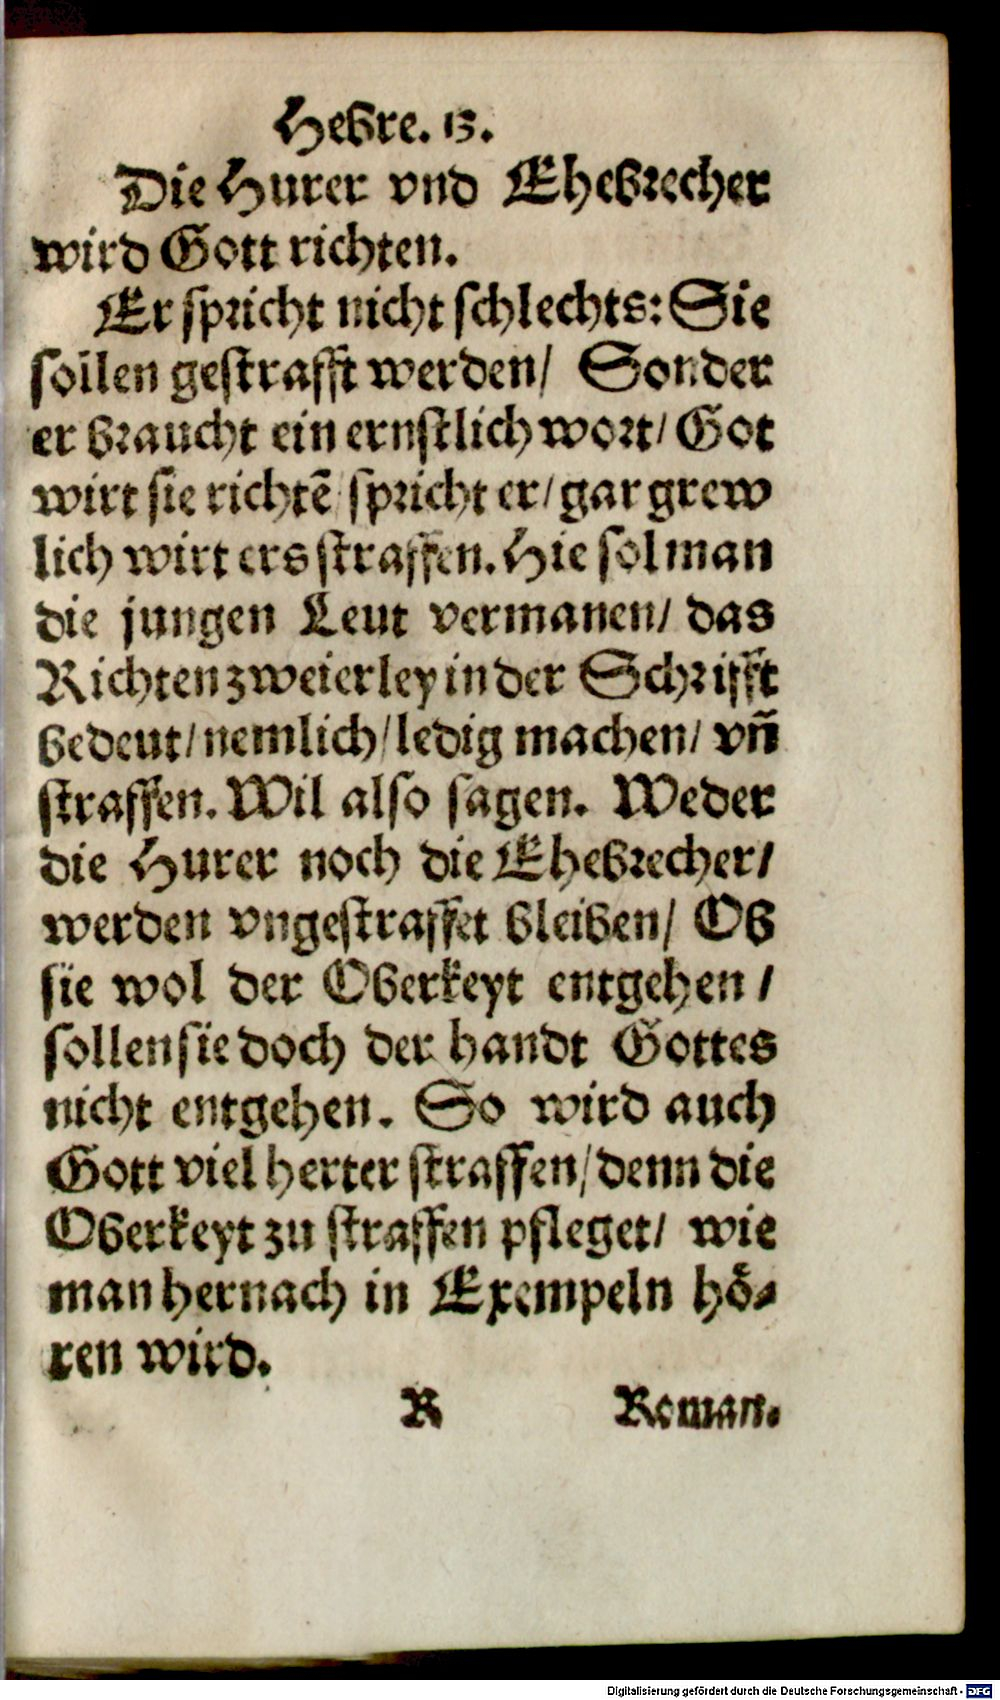 Hebre. 13.
Die Hurer vnd Ehebrecher
wird Gott richten.
Er spricht nicht schlechts: Sie
sollen gestrafft werden/ Sonder
er braucht ein ernstlich wort/ Got
wirt sie richtē/ spricht er/ gar grew
lich wirt ers straffen. Hie sol man
die jungen Leut vermanen/ das
Richten zweierley in der Schrifft
bedeut/ nemlich/ ledig machen/ vñ
straffen. Wil also sagen. Weder
die Hurer noch die Ehebrecher/
werden vngestraffet bleiben/ Ob
sie wol der Oberkeyt entgehen/
sollen sie doch der handt Gottes
nicht entgehen. So wird auch
Gott viel herter straffen/ denn die
Oberkeyt zu straffen pfleget/ wie
man hernach in Exempeln hö⸗
ren wird.
R Roman.
Digitalisierung gefördert durch die Deutsche Forschungsgemeinschaft - DFG